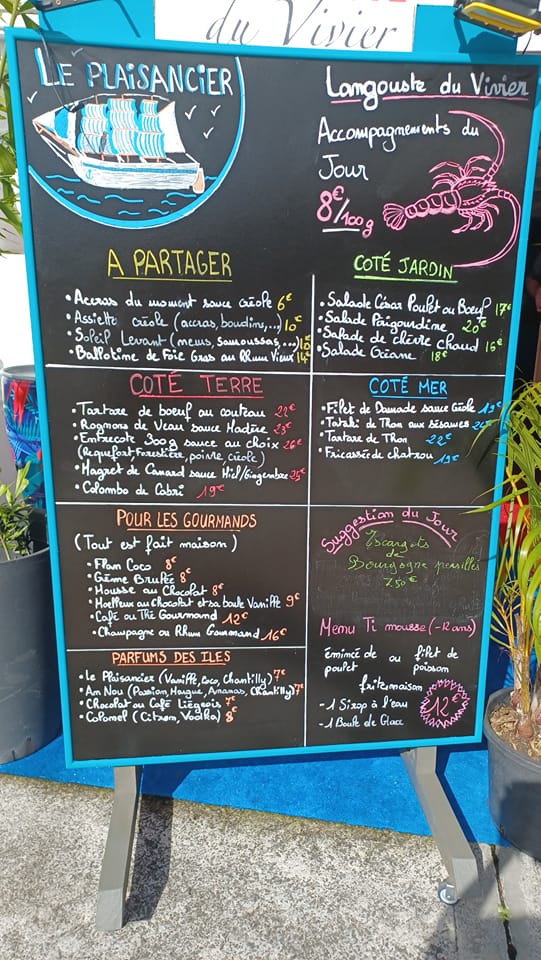 du Vivier
LE PLAISANCIER
Langouste du Vivier
Accompagnements du
Jour
8€/100g
A PARTAGER
• Accras du moment sauce créole 6€
• Assiette créole (accras, boudins,...) 10€
• Soleil Levant (nems, samoussas,...)
• Ballotine de Foie Gras au Rhum Vieux 14€
COTÉ JARDIN
• Salade César Poulet ou Boeuf 17€
• Salade Périgourdine 20€
• Salade de chèvre chaud 16€
• Salade Océane 18€
COTÉ TERRE
• Tartare de boeuf au couteau 22€
• Rognons de Veau sauce Madère 23€
• Entrecote 300g sauce au choix 26€
(Roquefort, Forestière, poivre, créole)
• Magret de Canard sauce Miel/Gingembre 25€
• Colombo de Cabri 19€
COTÉ MER
• Filet de Daurade sauce Créole 19€
• Tataki de Thon aux sésames
• Tartare de Thon 22€
• Fricassée de chatrou 19€
POUR LES GOURMANDS
(Tout est fait maison)
• Flan Coco 8€
• Crème Brulée 8€
• Mousse au Chocolat 8€
• Moelleux au Chocolat et sa boule Vanille 9€
• Café ou Thé Gourmand 12€
• Champagne ou Rhum Gourmand 16€
Suggestion du Jour
Escargots
de
Bourgogne persillés
7.50€
Menu Ti mousse (-12 ans)
émincé de ou filet de
poulet poisson
frites maison
- 1 Sirop à l'eau
- 1 Boule de Glace
12€
PARFUMS DES ILES
• Le Plaisancier (Vanille, Coco, Chantilly) 7€
• An Nou (Passion, Mangue, Ananas, Chantilly) 7€
• Chocolat ou Café Liégeois 7€
• Colonel (Citron, Vodka) 8€